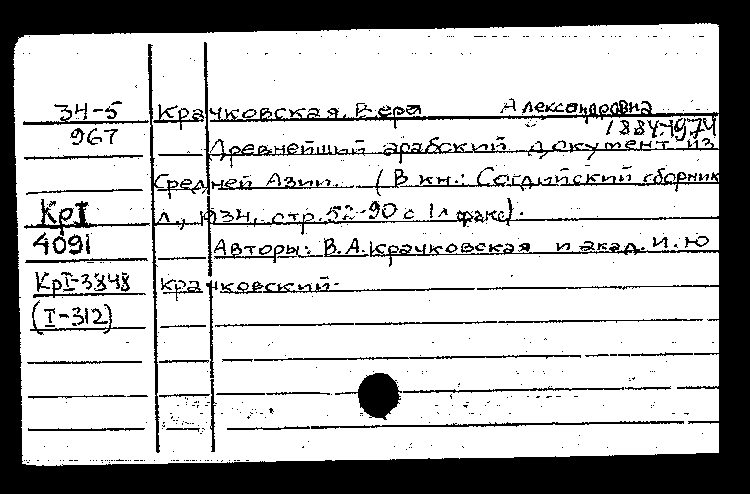 34-5 Крачковская, Вера Александровна
967 1884-1974
Древнейший арабский документ из
Средней Азии. (В кн.: Согдийский сборник
КрI Л., 1934, стр. 52-90 с 1 л факс).
4091 Авторы: В.А.Крачковская и акад. И.Ю
КрI-3848 Крачковский.
(I-312)